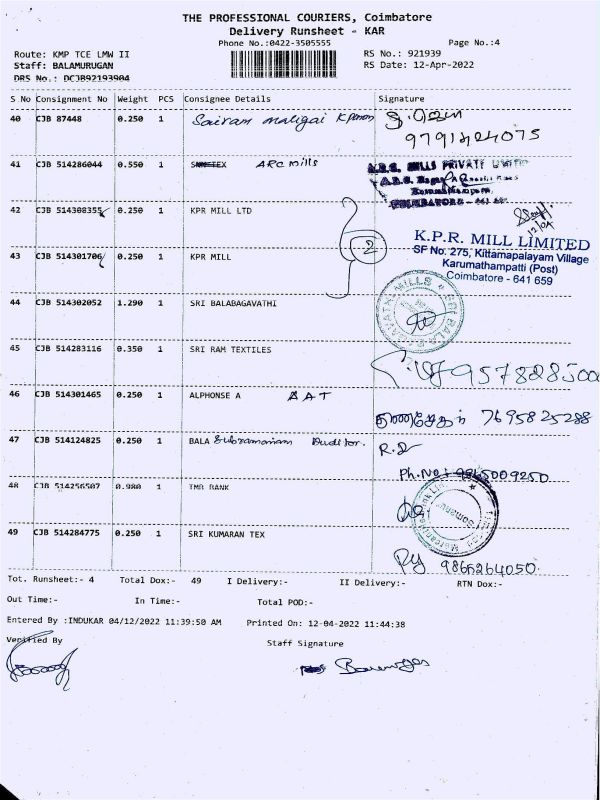 THE PROFESSIONAL COURIERS, Coimbatore
Delivery Runsheet - KAR
Phone No.:0422-3505555
Page No.:4
Route: KMP TCE LMW II
RS No.: 921939
Staff: BALAMURUGAN
RS Date: 12-Apr-2022
DRS No.: DCJB92193904
S No Consignment No Weight PCS Consignee Details Signature
40 CJB 87448 0.250 1 Sairam maligai
9791424075
41 CJB 514286044 0.550 1 ARC mills
MILLS PRIVATE LIMITED
COIMBATORE - 641
42 CJB 514308355 0.250 1 KPR MILL LTD
12/04
2
K.P.R. MILL LIMITED
SF No: 275, Kittamapalayam Village
Karumathampatti (Post)
Coimbatore - 641 659
43 CJB 514301706 0.250 1 KPR MILL
44 CJB 514302052 1.290 1 SRI BALABAGAVATHI
45 CJB 514283116 0.350 1 SRI RAM TEXTILES
46 CJB 514301465 0.250 1 ALPHONSE A AAT
7695825288
47 CJB 514124825 0.250 1 BALA Subramaniam Auditor.
R.S
Ph.No: 9965009250
48 CJB 514256507 0.980 1 TMB BANK
Somanur
49 CJB 514284775 0.250 1 SRI KUMARAN TEX
9866264050.
Tot. Runsheet:- 4 Total Dox:- 49 I Delivery:- II Delivery:- RTN Dox:-
Out Time:- In Time:- Total POD:-
Entered By :INDUKAR 04/12/2022 11:39:50 AM Printed On: 12-04-2022 11:44:38
Verified By Staff Signature